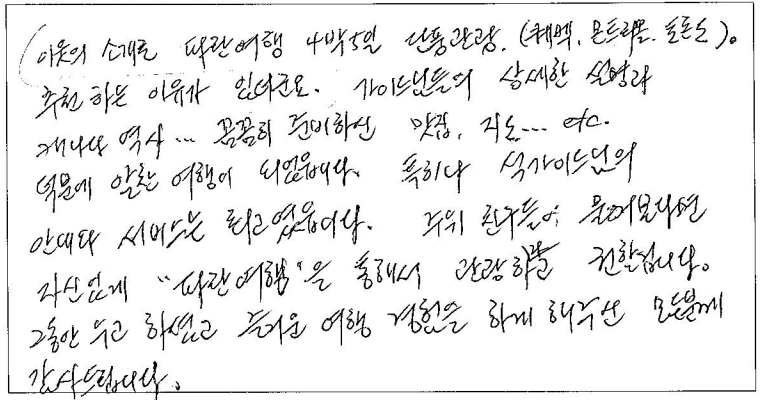 이웃의 소개로 파란여행 4박5일 단풍관광. (퀘백, 몬트리올. 토론토).
추천 하는 이유가 있더군요. 가이드님들의 상세한 설명과
캐나다 역사... 꼼꼼히 준비하신 맛집, 지도... etc.
덕분에 알찬 여행이 되었읍니다. 특히나 석가이드님의
안내와 서비스는 최고였읍니다. 주위 친구들이 물어본다면
자신있게 "파란여행"을 통해서 관광하길 권할겁니다.
그동안 수고 하셨고 즐거운 여행 경험을 하게 해주신 모든분께
감사드립니다.